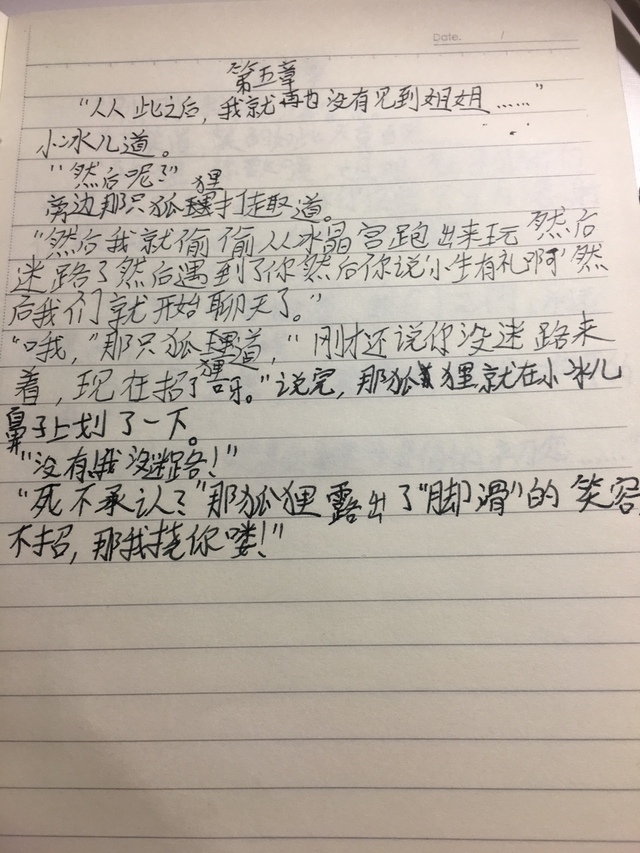 Date. /
第五章
“从此之后，我就再也没有见到姐姐……”
小冰儿道。
“然后呢？”
旁边那只狐狸打趣道。
“然后我就偷偷从冰晶宫跑出来玩然后
迷路了然后遇到了你然后你说‘小生有礼啊’然
后我们就开始聊天了。”
“哦，”那只狐狸道，“刚才还说你没迷路来
着，现在招了呀。”说完，那狐狸就在小冰儿
鼻子上划了一下。
“没有！我没迷路！”
“死不承认？”那狐狸露出了“脚滑”的笑容
不招，那我挠你喽！”